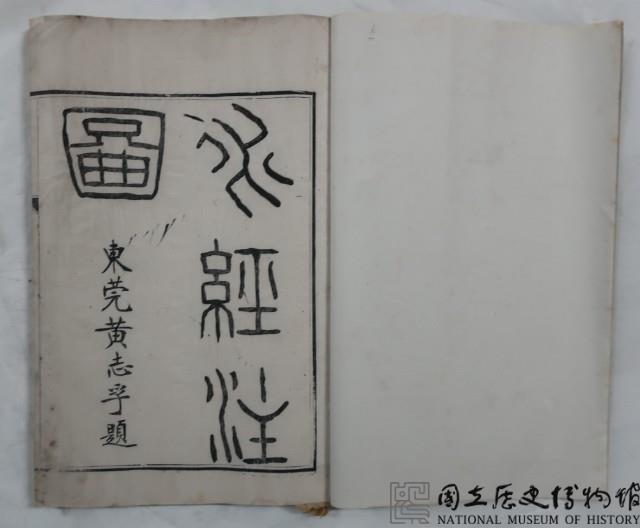 水經注
圖
東莞黃志孚題
國立歷史博物館
NATIONAL MUSEUM OF HISTORY